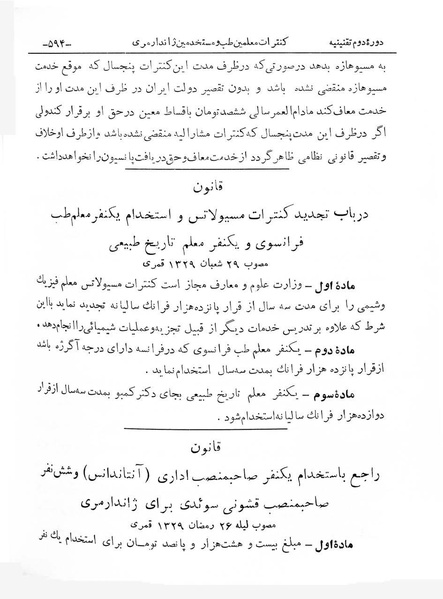 دورهٔ دوم تقنینیه کنترات معلمین طب و مستخدمین ژاندارمری -۵۹۴-
به مسیوهازه بدهد در صورتی که در ظرف مدت این کنترات پنجسال که موقع خدمت
مسیوهازه منقضی نشده باشد و بدون تقصیر دولت ایران در ظرف این مدت او را از
خدمت معاف کند مادام العمر سالی ششصد تومان باقساط معین در حق او برقرار کند ولی
اگر در ظرف این مدت پنجسال که کنترات مشارالیه منقضی نشده باشد و از طرف او خلاف
و تقصیر قانونی نظامی ظاهر گردد از خدمت معاف و حق دریافت پانسیون را نخواهد داشت.
قانون
در باب تجدید کنترات مسیولاتس و استخدام یکنفر معلم طب
فرانسوی و یکنفر معلم تاریخ طبیعی
مصوب ۲۹ شعبان ۱۳۲۹ قمری
مادهٔ اول - وزارت علوم و معارف مجاز است کنترات مسیولاتس معلم فیزیک
وشیمی را برای مدت سه سال از قرار پانزده هزار فرانک سالیانه تجدید نماید با این
شرط که علاوه بر تدریس خدمات دیگر از قبیل تجزیه و عملیات شیمیائی را انجام دهد.
مادهٔ دوم - یکنفر معلم طب فرانسوی که در فرانسه دارای درجه آگرژه باشد
از قرار پانزده هزار فرانک بمدت سه سال استخدام نماید.
مادهٔ سوم - یکنفر معلم تاریخ طبیعی بجای دکتر کمبو بمدت سه سال از قرار
دوازده هزار فرانک سالیانه استخدام شود.
قانون
راجع باستخدام یکنفر صاحبمنصب اداری (آنتاندانس) و شش نفر
صاحبمنصب قشونی سوئدی برای ژاندارمری
مصوب لیله ۲۶ رمضان ۱۳۲۹ قمری
مادهٔ اول - مبلغ بیست و هشت هزار و پانصد تومان برای استخدام یک نفر